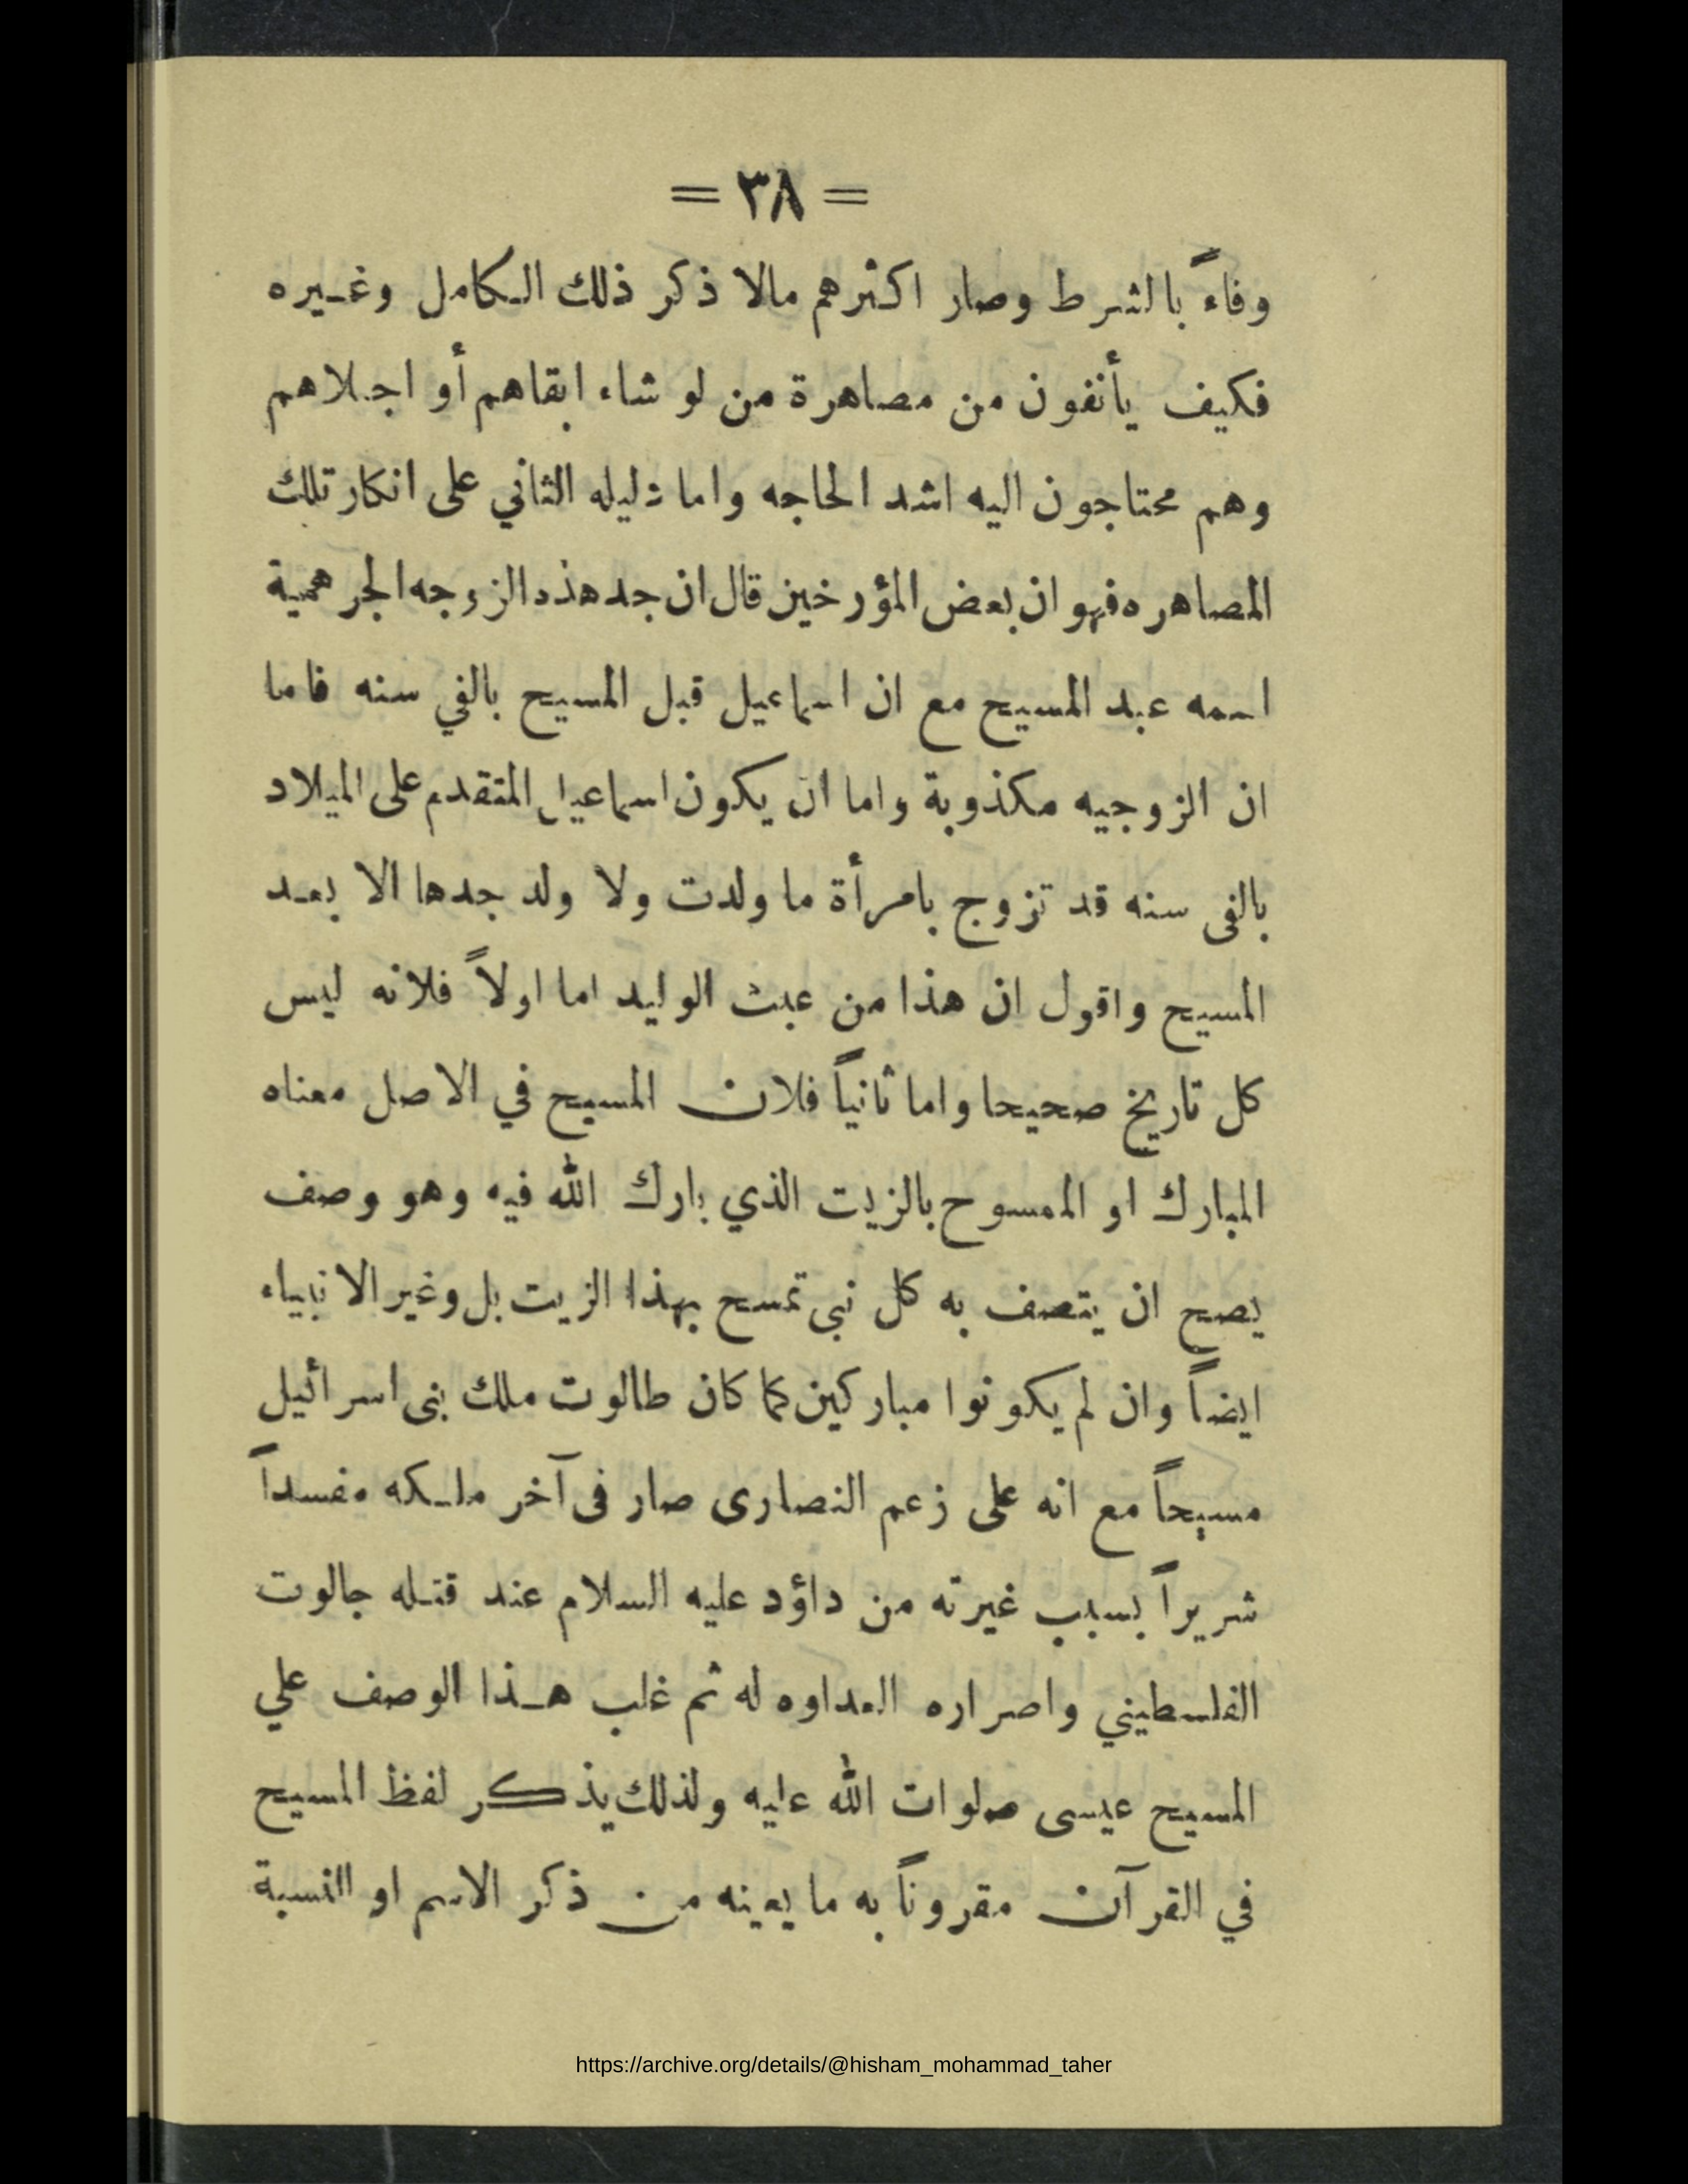 = ٣٨ =
وفاءً بالشرط وصار اكثرهم مالا ذكر ذلك الكامل وغيره
فكيف يأنفون من مصاهرة من لو شاء ابقاهم أو اجلاهم
وهم محتاجون اليه اشد الحاجه واما دليله الثاني على انكار تلك
المصاهره فهو ان بعض المؤرخين قال ان جد هذه الزوجه الجرهمية
اسمه عبد المسيح مع ان اسماعيل قبل المسيح بالفي سنه فاما
ان الزوجيه مكذوبة واما ان يكون اسماعيل المتقدم على الميلاد
بالفى سنه قد تزوج بامرأة ما ولدت ولا ولد جدها الا بعد
المسيح واقول ان هذا من عبث الوليد اما اولاً فلانه ليس
كل تاريخ صحيحا واما ثانياً فلان المسيح في الاصل معناه
المبارك او الممسوح بالزيت الذي بارك الله فيه وهو وصف
يصح ان يتصف به كل نبى تمسح بهذا الزيت بل وغير الانبياء
ايضاً وان لم يكونوا مباركين كما كان طالوت ملك بنى اسرائيل
مسيحاً مع انه على زعم النصارى صار فى آخر ملكه مفسداً
شريراً بسبب غيرته من داؤد عليه السلام عند قتله جالوت
الفلسطيني واصراره العداوه له ثم غلب هذا الوصف علي
المسيح عيسى صلوات الله عليه ولذلك يذكر لفظ المسيح
في القرآن مقروناً به ما يعينه من ذكر الاسم او النسبة
https://archive.org/details/@hisham_mohammad_taher